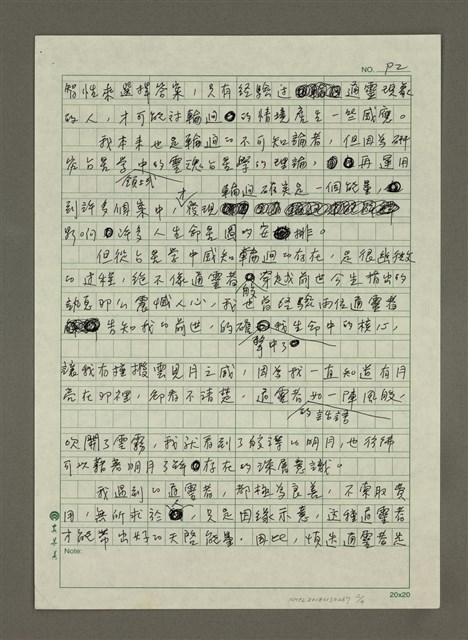 NO. P2
智性來選擇答案，只有經驗過通靈現象
的人，才可能對輪迴的情境產生一些感應。
我本來也是輪迴的不可知論者，但因為研
究占星學中的靈魂占星學的理論，再運用
到許多個案中，才發現輪迴確實是一個能量，
影响許多人生命星圖的安排。
但從占星學中感知輪迴的存在，是很幽微
的過程，絕不像通靈者般穿越前世今生指出的
訊息那麼震憾人心，我也曾經驗兩位通靈者
告知我的前世，的確擊中了我生命中的核心，
讓我有撞撥雲見月之感，因為我一直知道有月
亮在那裡，卻看不清楚，通靈者的話語如一陣風般，
吹開了雲霧，我就看到了皎潔的明月，也彷彿
可以藉著明月了解存在的深層意識。
我遇到的通靈者，都極為良善，不索取費
用，無所求於人，只是因緣示意，這種通靈者
才能帶出好的天啓能量。因此，慎選通靈者是
Note:
20x20